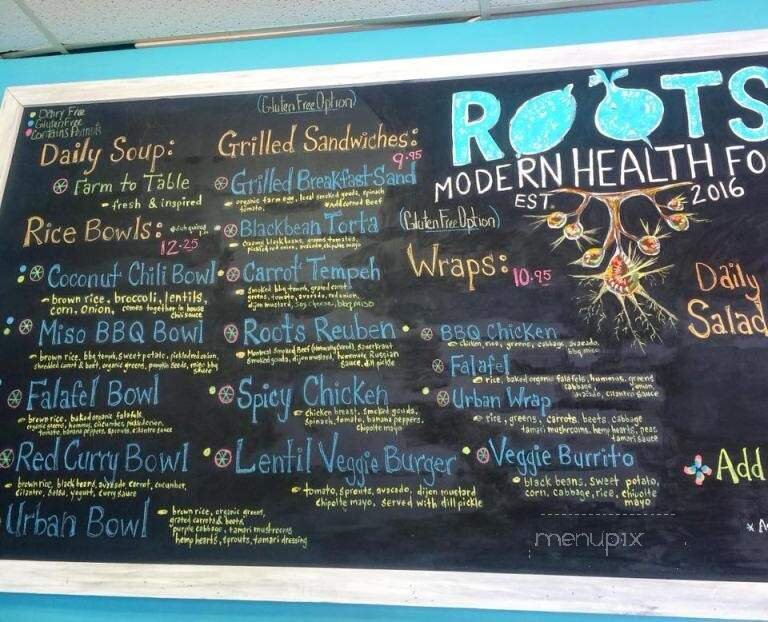 Dairy Free
Gluten Free
Contains Peanuts
Daily Soup:
Farm to Table
- fresh & inspired
Rice Bowls:
12.25
Coconut Chili Bowl
- brown rice, broccoli, lentils,
corn, onion, comes together in house
chili sauce
Miso BBQ Bowl
- brown rice, bbq temph, sweet potato, pickled red onion,
shredded carrot & beet, organic greens, pumpkin seeds, miso bbq
sauce
Falafel Bowl
- brown rice, baked organic falafels,
organic greens, hummus, cucumber, pickled onion,
tomato, banana peppers, sprouts, cilantro sauce
Red Curry Bowl
brown rice, black beans, avocado, carrot, cucumber,
cilantro, salsa, yogurt, curry sauce
Urban Bowl
- brown rice, organic greens,
grated carrots & beets,
purple cabbage, tamari mushrooms
hemp hearts, sprouts, tamari dressing
(Gluten Free Option)
Grilled Sandwiches:
9.95
Grilled Breakfast Sand
- organic farm egg, local smoked gouda, spinach
tomato,
Blackbean Torta
- creamy black beans, greens, tomatoes,
pickled red onion, avocado, chipolte mayo
Carrot Tempeh
- smoked bbq temph, grated carrot
greens, tomato, avocado, red onion,
dijon mustard, soy cheese, bbq miso
Roots Reuben
- Montreal smoked Beef (Naturally Cured), sauerkraut
smoked gouda, dijon mustard, homemade Russian
sauce, dill pickle
Spicy Chicken
- chicken breast, smoked gouda,
spinach, tomato, banana peppers,
chipolte mayo
Lentil Veggie Burger
- tomato, sprouts, avocado, dijon mustard
chipolte mayo, served with dill pickle
ROOTS
MODERN HEALTH FO
EST. 2016
(Gluten Free Option)
Wraps: 10.95
BBQ Chicken
- chicken, rice, greens, cabbage, avocado,
bbq miso
Falafel
- rice, baked organic falafels, hummus, greens
cabbage, onion,
avocado, cilantro sauce
Urban Wrap
- rice, greens, carrots, beets, cabbage
tamari mushrooms, hemp hearts, peas
tamari sauce
Veggie Burrito
- black beans, sweet potato,
corn, cabbage, rice, chipolte
mayo
Daily
Salad
Add
menupix